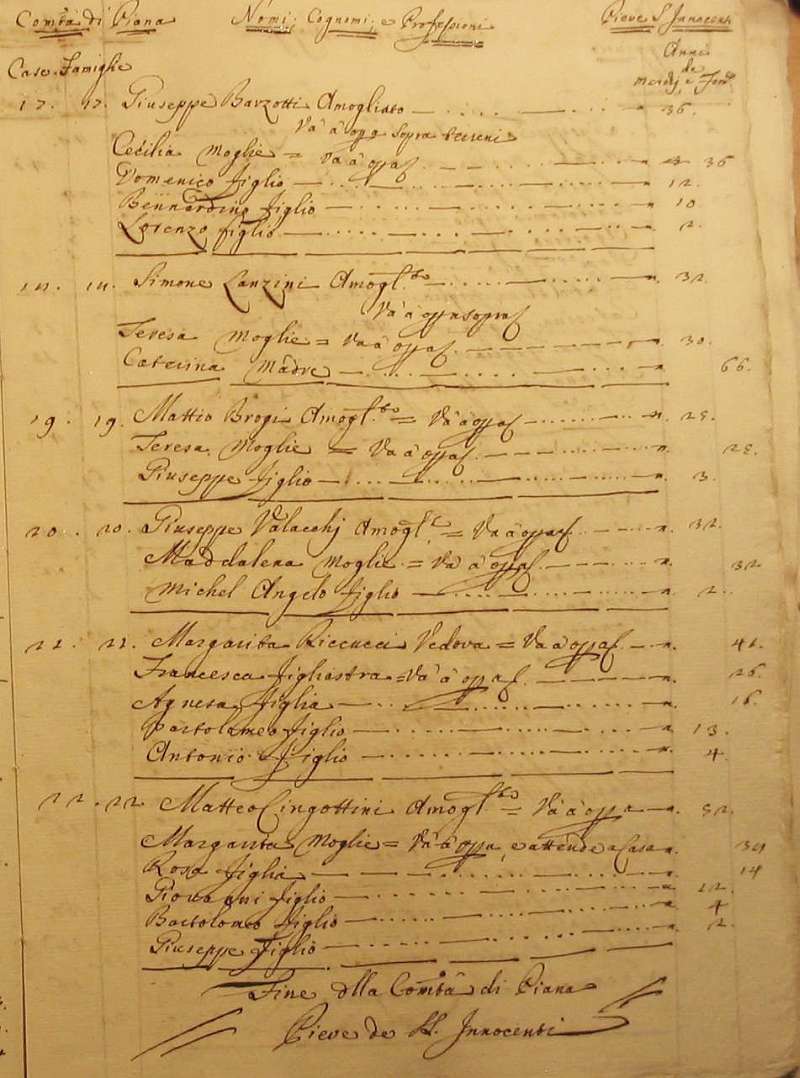 Comtà di Piana Nomi; Cognomi; e Professioni Pieve S. Innocenti
Case. Famiglie Anni de Maschj e Fem.
17. 17. Giuseppe Barzotti Amogliato 36.
Và à opp.e sopra terreni
Cecilia Moglie = Và à oppa 36
Domenico figlio 12.
Bennardino figlio 10
Lorenzo figlio 2.
Simone Lanzini Amogl.to 32.
Và à oppa sopra
Teresa Moglie = Và à oppa 30.
Caterina Madre 66.
19. 19. Mattio Brogi Amogl.to = Và à oppa 28.
Teresa Moglie = Và à oppa 28.
Giuseppe figlio 3.
20. 20. Giuseppe Valacchj Amogl.to = Và à oppa 32.
Maddalena Moglie = Và à oppa 32
Michel Angelo figlio 2.
21. 21. Margarita Riccucci Vedova = Và à oppa
Francesca figliastra = Và à oppa 26.
Agnesa figlia 16.
Bartolomeo figlio 13.
Antonio figlio 4
22. 22. Matteo Cingottini Amogl.to = Và à oppa
Margarita Moglie = Và à oppa, e attende a Casa
Rosa figlia 14
Giovanni figlio 12.
Bartolomeo figlio 4
Giuseppe figlio 2.
Fine della Comtà di Piana
Pieve de SS. Innocenti